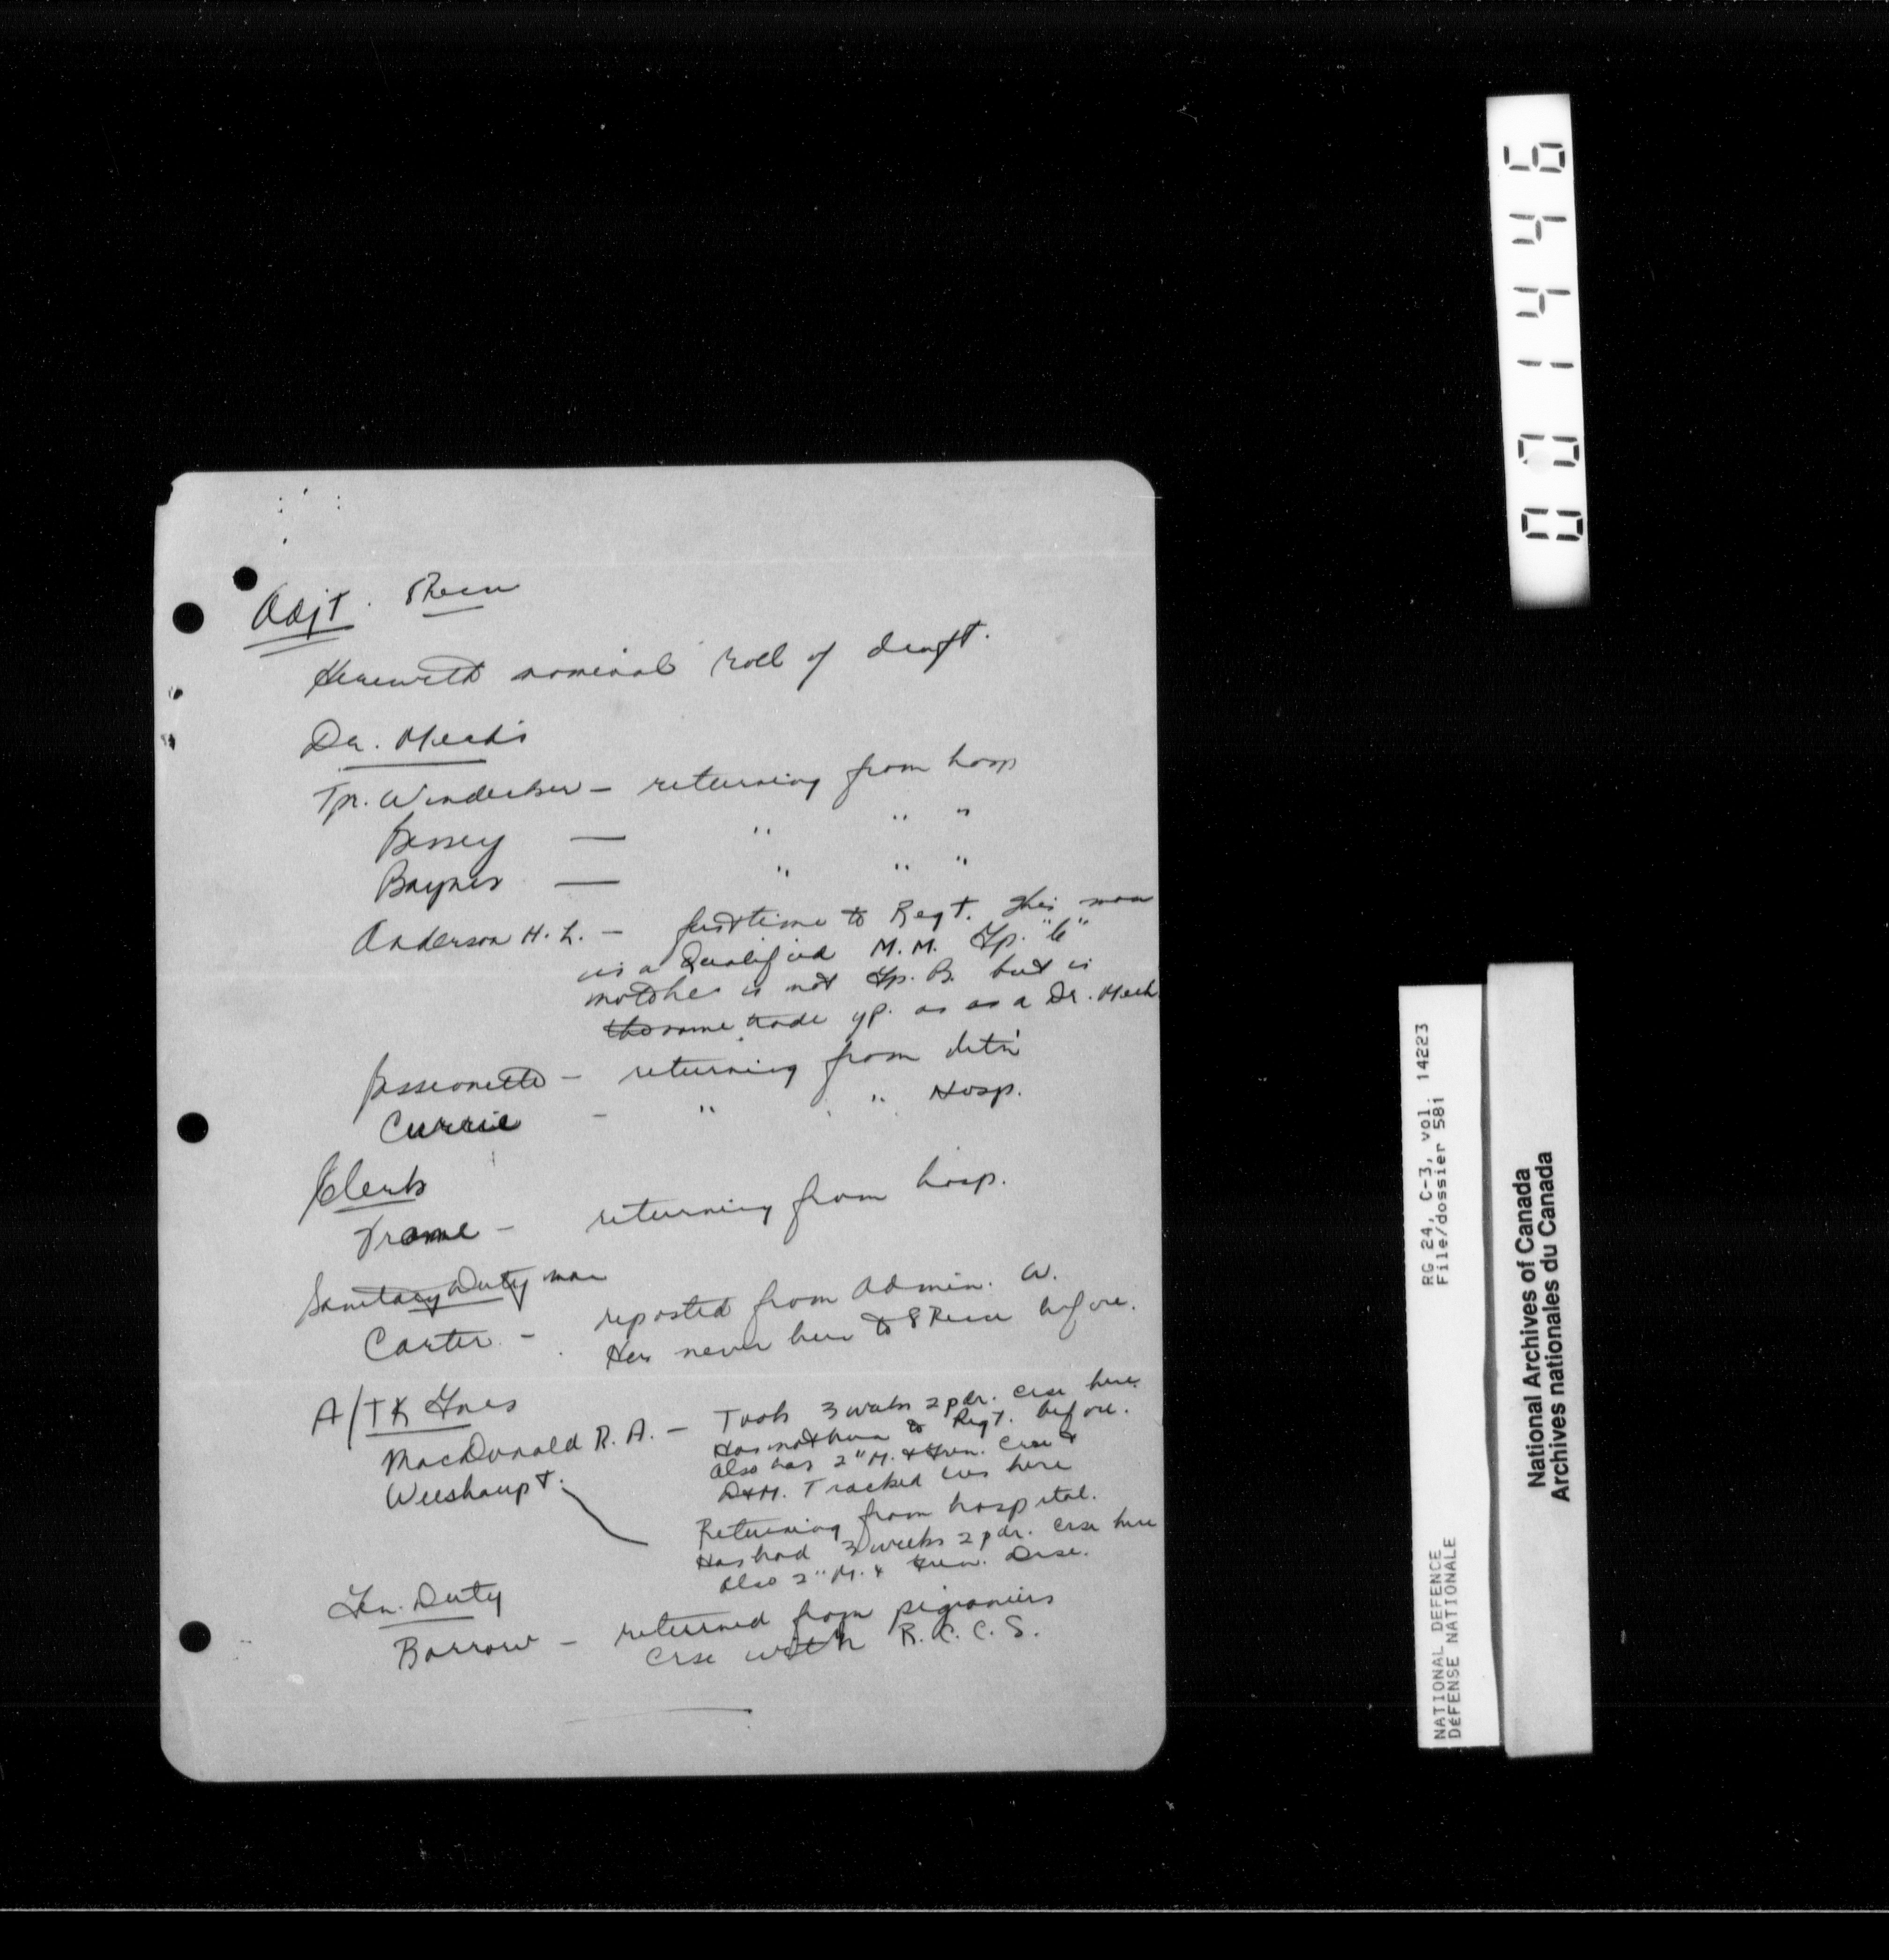 Adjt. 8 Recce
Herewith nominal roll of draft.
Dr. Mechs
Tpr. Windecker – returning from hosp
Bessey — " " "
Baynes — " " "
Anderson H. L. – first time to Regt. This man
is a Qualified M.M. Gp. "C"
mot he is not Gp. B. but is
the same trade gp. as as a Dr. Mech
Bessionette – returning from det'n
Currie – " " Hosp.
Clerk
Frame – returning from hosp.
Sanitary Duty man
Carter – reposted from Admin. W.
Has never been to 8 Recce before.
A/TK Gnrs
MacDonald R. A. – Took 3 weeks 2 pdr. crse here.
Has not been to Regt. before.
Also has 2" M. & Gren. Crse &
D&M. Tracked crs here
Weishaupt.
Returning from hospital.
Has had 3 weeks 2 pdr. crse here
Also 2" M. & Gren. Crse.
Gen. Duty
Barrow – returned from pigioniers
crse with R.C.C.S.
001446
RG 24, C-3, vol. 14223
File/dossier 581
NATIONAL DEFENCE
DÉFENSE NATIONALE
National Archives of Canada
Archives nationales du Canada